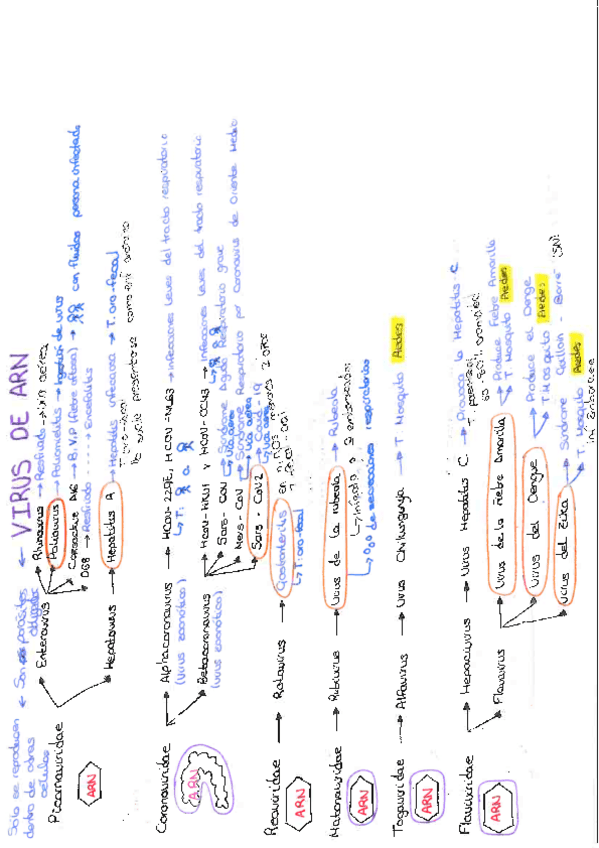 Solo se reproducen dentro de otras células ← Son parásitos obligados ← VIRUS DE ARN
Picornaviridae
ARN
Enterovirus
Rhinovirus → Resfriado → Vía aérea
Poliovirus → Poliomielitis → Ingestión de virus
Coxsackie A16 → B.V.P (fiebre aftosa) → con fluidos persona infectada
D68 → Resfriado ---- → Encefalitis
Hepatovirus → Hepatitis A → Hepatitis infecciosa → T. oro-fecal
Coronaviridae
ARN
Alphacoronavirus → HCoV-229E, HCoV-NL63 → infecciones leves del tracto respiratorio
(virus zoonóticos)
Betacoronavirus
(virus zoonóticos)
HCoV-HKU1 y HCoV-OC43 → infecciones leves del tracto respiratorio
Sars-CoV → Síndrome Agudo Respiratorio grave
vía aérea
Mers-CoV → Síndrome Respiratorio por Coronavirus de Oriente Medio
vía aérea
Sars-CoV2 → Covid-19
vía aérea
Reoviridae → Rotavirus → Gastroenteritis en niños menores 2 años
ARN
T: oro-fecal
Matonaviridae → Rubivirus → Virus de la rubeola → Rubeola
ARN
Inhalación
secreciones respiratorias
Togaviridae → Alfavirus → Virus Chikungunya → T Mosquito Aedes
ARN
Flaviviridae
ARN
Hepacivirus → Virus Hepatitis C → Provoca la Hepatitis C
Flavivirus
Virus de la fiebre Amarilla → Produce Fiebre Amarilla
→ T Mosquito Aedes
Virus del Dengue → Produce el Dengue
→ T Mosquito Aedes
Virus del Zika → Síndrome Guillain - Barré (SNP
→ T. Mosquito Aedes